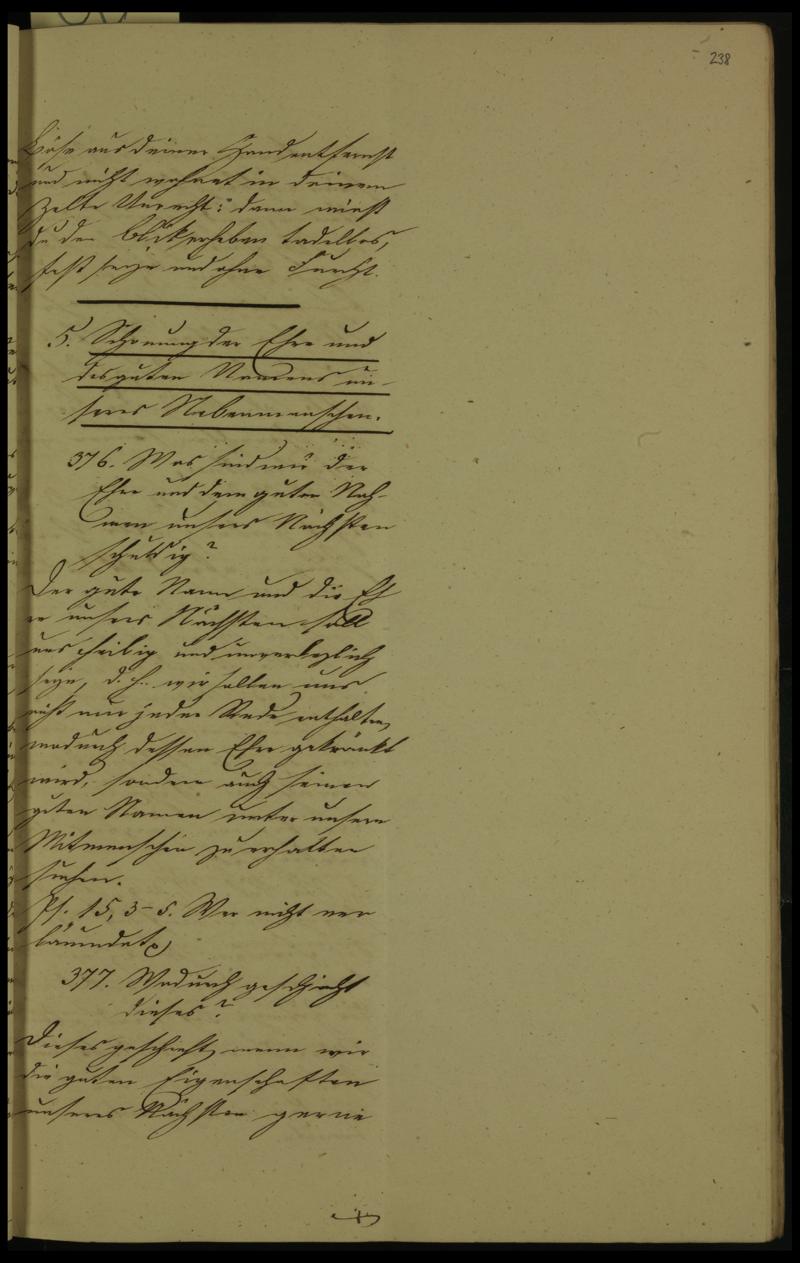 238
Böse aus deiner Hand entfernst
und nicht wohnet in deinem
Zelte Unrecht: dann wirst
du den Blick erheben tadellos,
fest seyn und ohne Furcht.
5. Schonung der Ehre und
des guten Namens un-
seres Nebenmenschen.
376. Was sind wir der
Ehre und dem guten Nah-
men unsers Nächsten
schuldig?
Der gute Name und die Eh
re unsers Nächsten soll
uns heilig und unverletzlich
seyn, d. h. wir sollen uns
nicht nur jeder Rede enthalten,
wodurch dessen Ehre gekränkt
wird, sondern auch seinen
guten Namen unter unsern
Mitmenschen zu erhalten
suchen.
Ps. 15, 3-5. Wer nicht ver
läumdet
377. Wodurch geschieht
dieses?
Dieses geschieht, wenn wir
die guten Eigenschaften
unseres Nächsten gerne